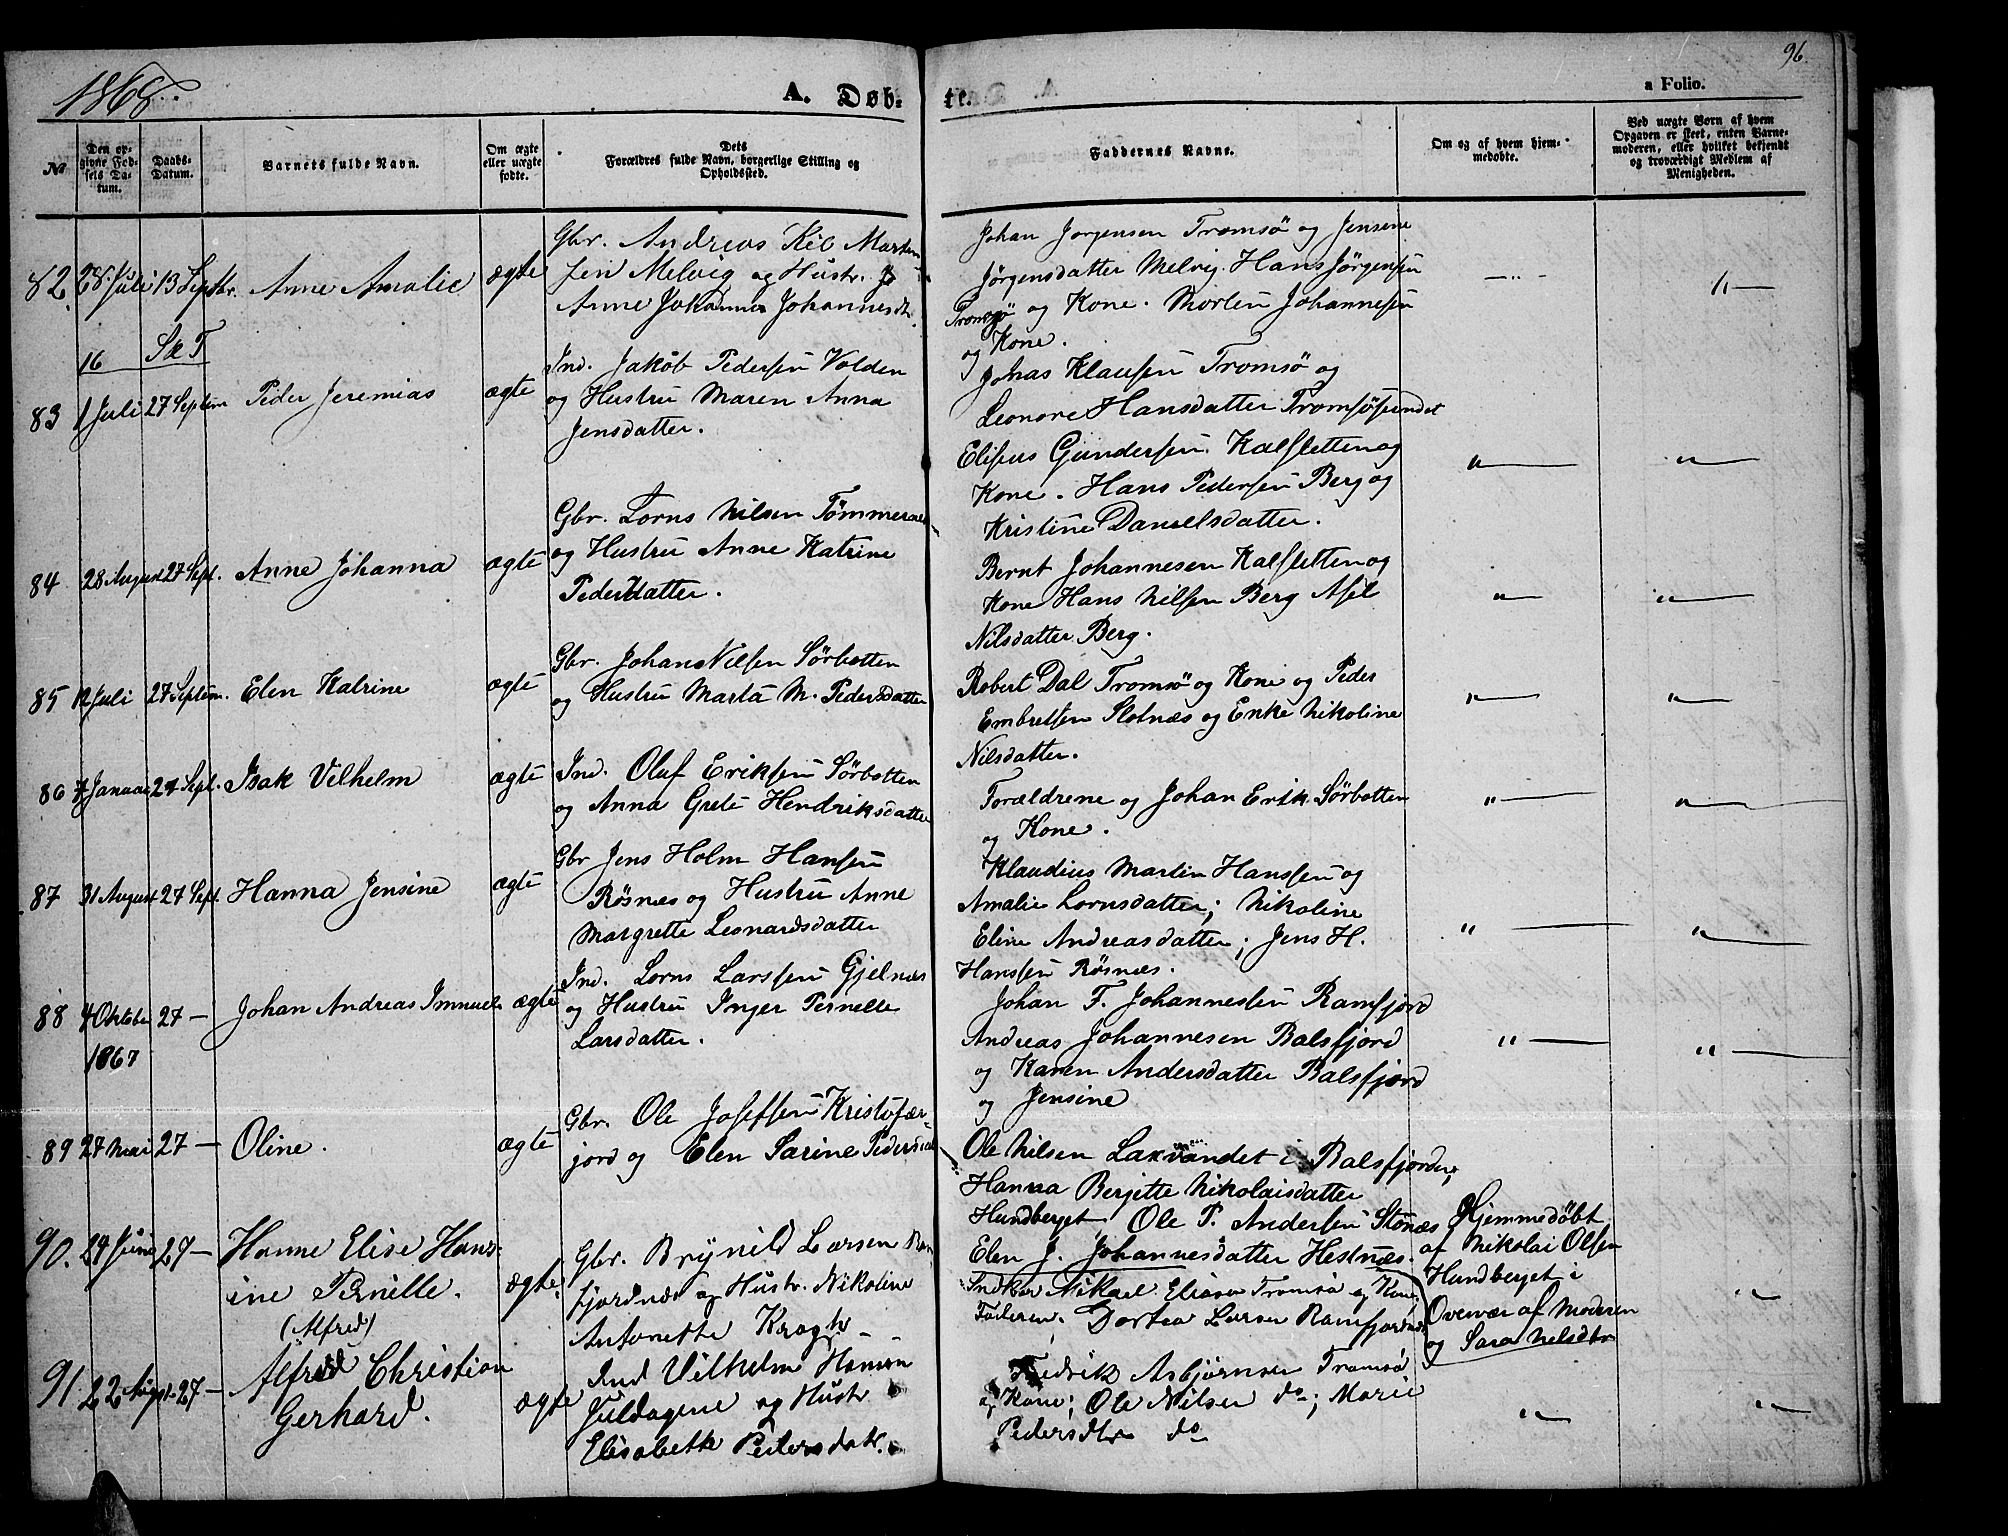 1868.
A. Døb-
te.
96
a Folio.
No
Den op-
givne Fød-
sels Da-
tum.
Daabs-
Datum.
Barnets fulde Navn.
Om ægte
eller uægte
fødte.
Dets
Forældres fulde Navn, borgerlige Stilling og
Opholdssted.
Faddernes Navne.
Om og af hvem hjem-
medøbte.
Ved uægte Børn af hvem
Opgaven er skeet, enten Barne-
moderen, eller hvilket bekjendt
og troværdigt Medlem af
Menigheden.
82. 28 Juli 13 Septbr. Anne Amalie ægte
Gbr. Andreas Kil Marten
sen Melvig og Hustr.
Anne Johanna Johannesdtr.
Johan Jørgensen Tromsø og Jensine
Jørgensdatter Melvig. Hans Jørgensen
Tromsø og Kone. Morten Johannesen
og Kone.
16 S æ T
83 1 Juli 27 Septem Peder Jeremias ægte
Ind. Jakob Pedersen Volden
og Hustru Maren Anna
Jensdatter.
Johas Klausen Tromsø og
Leonore Hansdatter Tromsøsundet
Eliseus Gundersen Kalsletten og
Kone. Hans Pedersen Berg og
Kristine Danielsdatter.
84 28 August 27 Sept. Anne Johanna ægte
Gbr. Lorns Nilsen Tømmer
og Hustru Anne Katrine
Pedersdatter.
Bernt Johannesen Kalsletten og
Kone Hans Nilsen Berg Asel
Nilsdatter Berg.
85 12 Juli 27 Septem. Elen Katrine ægte
Gbr. Johan Nilsen Sørbotten
og Hustru Marta M. Pedersdatter
Robert Dal Tromsø og Kone og Peder
Embretsen Slotnæs og Enke Nikoline
Nilsdatter.
86 7 Januar 27 Sept. Isak Vilhelm ægte
Ind. Oluf Eriksen Sørbotten
og Anna Grete Hendriksdatter
Forældrene og Johan Erik. Sørbotten
og Kone.
87 31 August 27 Sept. Hanna Jensine ægte
Gbr Jens Holm Hansen
Røsnæs og Hustru Anne
Margrette Leonardsdatter
Klaudius Martin Hanssen og
Amalie Lornsdatter; Nikoline
Eline Andreasdatter; Jens H.
Hanssen Røsnæs.
88 4 Oktober 27 — Johan Andreas Imnuel ægte
1867
Ind. Lorns Larssen Gjelnæs
og Hustru Inger Pernelle
Larsdatter.
Johan F. Johannesen Ramfjord
Andreas Johannesen Balsfjord
og Karen Andersdatter Balsfjord
og Jensine
89 27 Mai 27 — Oline. ægte
Gbr. Ole Josefsen Kristofær-
jord og Elen Sarine Pedersdat
Ole Nilsen Laxvandet i Balsfjorden;
Hanna Bergitte Nikolaisdatter
Hundberget Ole P. Andersen Stónæs
Elen J. Johannesdatter Hestnæs.
90. 24 Juni 27 — Hanne Elise Hans-
ine Pernille. ægte.
Gbr. Brynild Larsen Ram
fjordnæs og Hustr. Nikoline
Antonette Krogh
Indkr Mikael Eliasen Tromsø og Kone
Faderen. Dortea Larsen Ramfjordnæs
Hjemmedøbt
af Nikolai Olsen
Hundberget i
Overvær af Moderen
og Sara Nilsdtr
(Alfred)
91 22 August 27 — Alfred Christian
Gerhard. ægte
Ind Vilhelm Hansen
Juldagene og Hustr
Elisabeth Pedersdatr.
Fredrik Asbjørnsen Tromsø
og Kone; Ole Nilsen do; Marie
Pedersdtr do